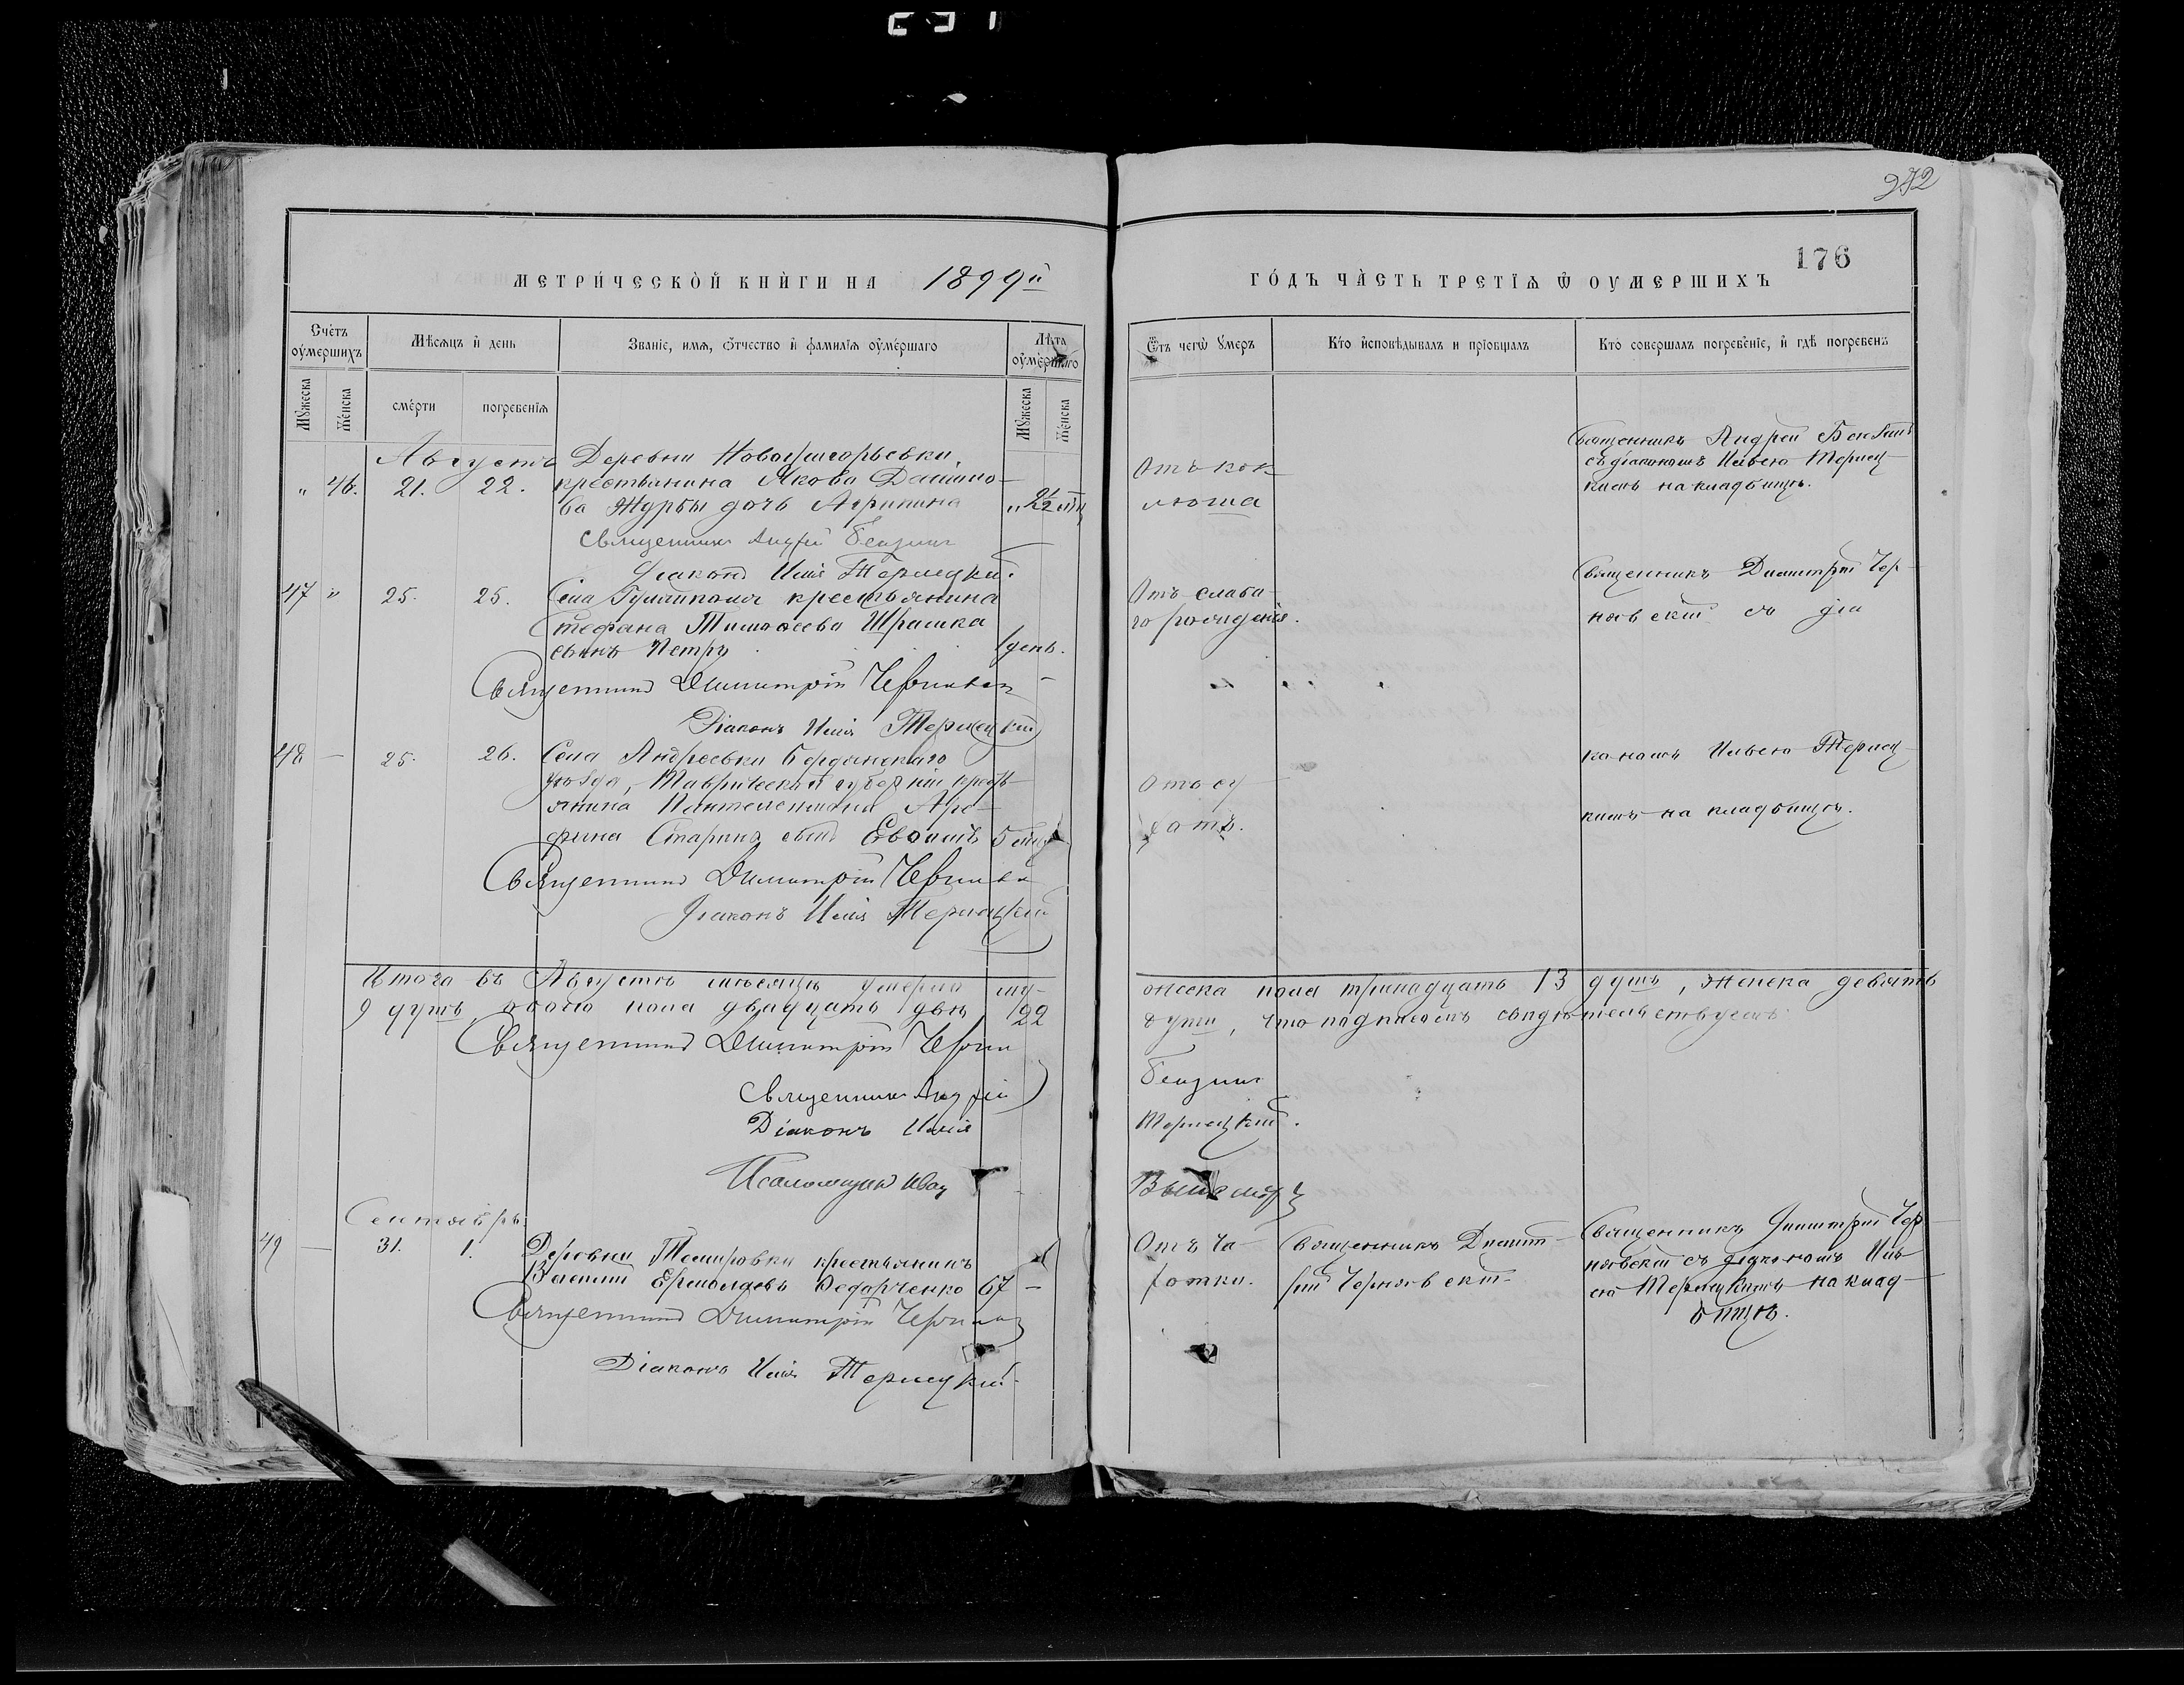 272
176
МЕТРИЧЕСКОЙ КНИГИ НА 1899й
ГОДЪ ЧАСТЬ ТРЕТІѦ Ѿ ОУМЕРШИХЪ
Счетъ оумершихъ
Мѣсяцъ и день
Званіе, имя, отчество и фамилія оумершаго
Лѣта оумершаго
Ѿтъ чегѡ оумеръ
Кто исповѣдывалъ и пріобщалъ
Кто совершалъ погребеніе, и гдѣ погребенъ
Мужеска
Женска
смерти
погребенія
Мужеска
Женска
Августъ
„ 46. 21. 22. Деревни Новогригорьевки
крестьянина Якова Даміано-
ва Журбы дочь Агрипина „ 2½
Священникъ Андрей Бензинъ
Діаконъ Илія Терлецкій.
Отъ кок-
люша
Священникъ Андрей Бензинъ
съ діакономъ Ильею Терлец-
кимъ на кладбищѣ.
47 „ 25. 25. Села крестьянина
Стефана Тимоѳеева Шрамка
сынъ Петръ 1 день.
Священникъ Димитрій
Діаконъ Илія Терлецкій
Отъ слаба-
го рожденія.
Священникъ Димитрій Чер-
нявскій съ діа
48 — 25. 26. Села Андреевки Бердянскаго
уѣзда, Таврической губерніи крест-
янина Пантелеимона
сынъ 5
Священникъ Димитрій
Діаконъ Илія Терлецкій
кономъ Ильею Терлец-
кимъ на кладбищѣ.
Итого въ Августѣ мѣсяцѣ умерло му-
жеска пола тринадцать 13 душъ, женска девять
9 душъ, обоего пола двадцать двѣ 22
души, что подписомъ свидѣтельствуемъ:
Священникъ Димитрій
Священникъ Андрей Бензинъ
Діаконъ Илія Терлецкій.
Псаломщикъ Иванъ
Сентябрь.
49 — 31. 1. Деревни Темировки крестьянинъ
Василій Ермолаевъ Ѳедорченко 67 —
Священникъ Димитрій
Діаконъ Илія Терлецкій
Отъ ча-
хотки.
Священникъ Димит-
рій Чернявскій
Священникъ Димитрій Чер-
нявскій съ діакономъ Иль-
ею Терлецкимъ на клад-
бищѣ.